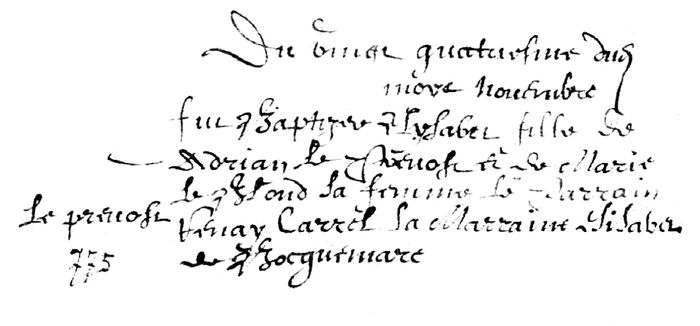 Du vingt quatriesme dud
moys novembre
fut Baptizee Elysabet fille de
Adrian le Prevost et de Marie
le Blond sa femme le Parrain
Renay Carrel la Marraine Elisabet
de Bocquemare
le prevost
775